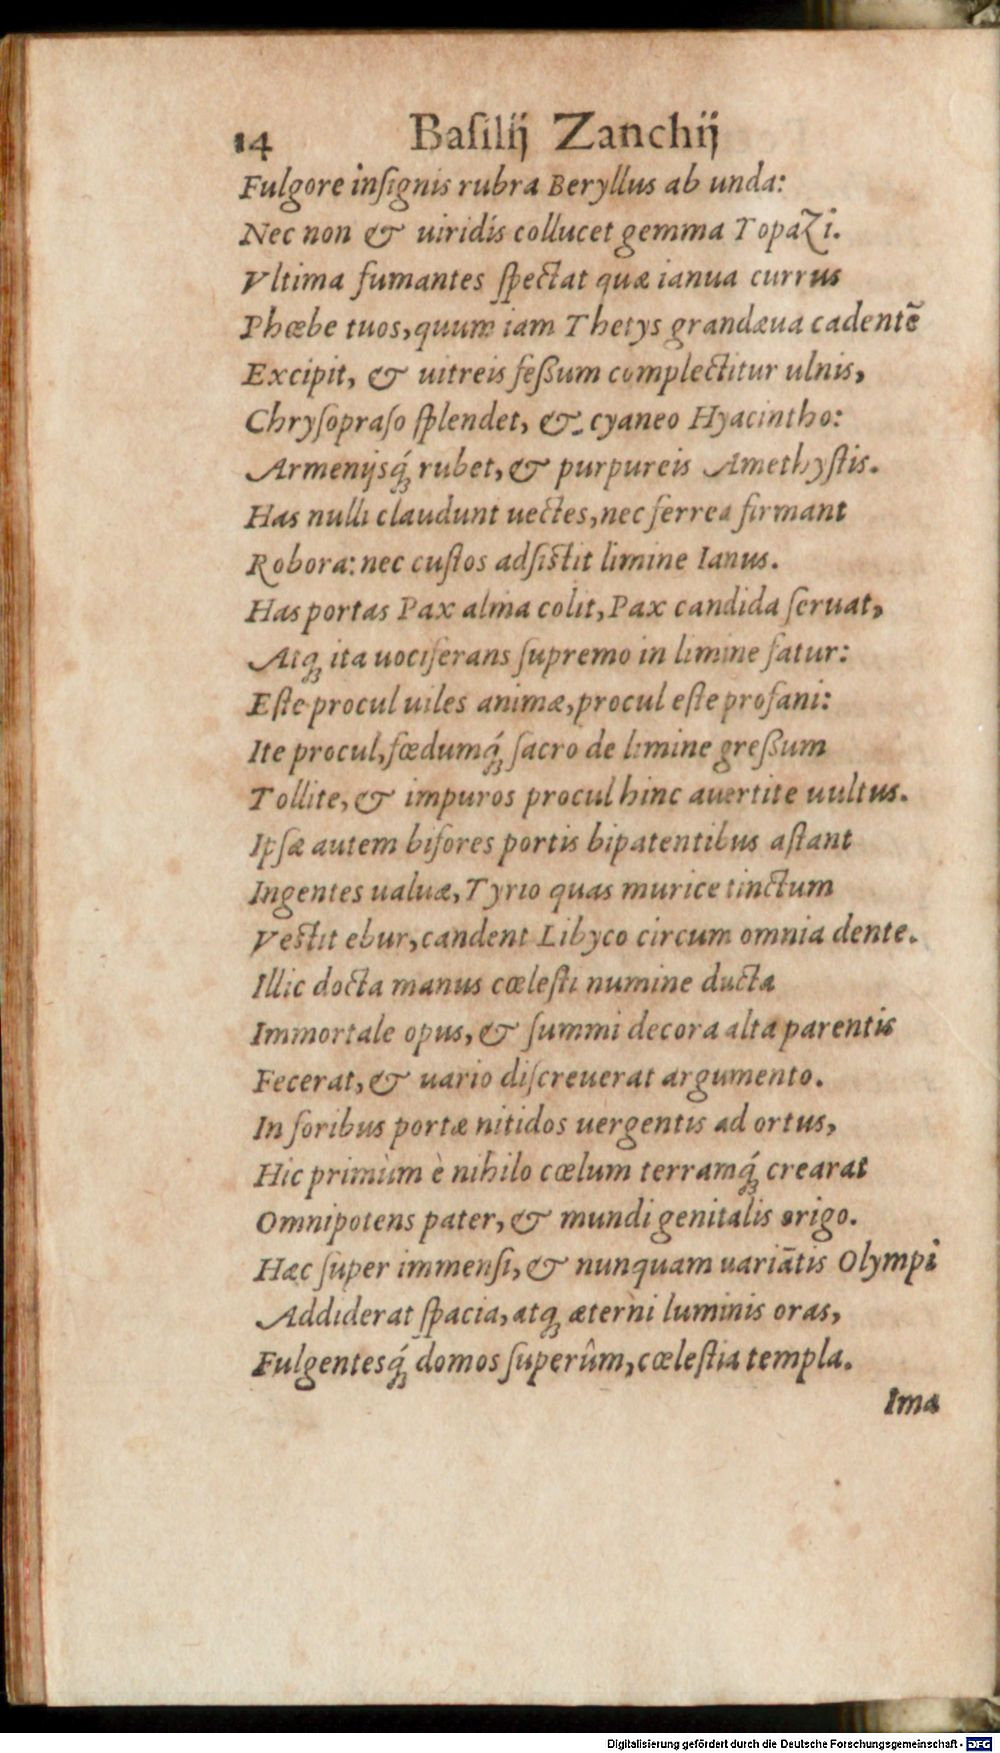 14 Baſilij Zanchij
Fulgore inſignis rubra Beryllus ab unda:
Nec non & uiridis collucet gemma Topazi.
Vltima fumantes ſpectat quæ ianua currus
Phœbe tuos, quum iam Thetys grandæua cadentẽ
Excipit, & uitreis feßum complectitur ulnis,
Chryſopraſo ſplendet, & cyaneo Hyacintho:
Armenijsq́; rubet, & purpureis Amethyſtis.
Has nulli claudunt uectes, nec ferrea firmant
Robora: nec cuſtos adſiſtit limine Ianus.
Has portas Pax alma colit, Pax candida ſeruat,
Atq; ita uociferans ſupremo in limine fatur:
Eſte procul uiles animæ, procul eſte profani:
Ite procul, fœdumq́; ſacro de limine greßum
Tollite, & impuros procul hinc auertite uultus.
Ipſæ autem bifores portis bipatentibus aſtant
Ingentes ualuæ, Tyrio quas murice tinctum
Veſtit ebur, candent Libyco circum omnia dente.
Illic docta manus cœleſti numine ducta
Immortale opus, & ſummi decora alta parentis
Fecerat, & uario diſcreuerat argumento.
In foribus portæ nitidos uergentis ad ortus,
Hic primùm è nihilo cœlum terramq́; crearat
Omnipotens pater, & mundi genitalis origo.
Hæc ſuper immenſi, & nunquam uariãtis Olympi
Addiderat ſpacia, atq; æterni luminis oras,
Fulgentesq́; domos ſuperûm, cœleſtia templa.
Ima
Digitalisierung gefördert durch die Deutsche Forschungsgemeinschaft - DFG